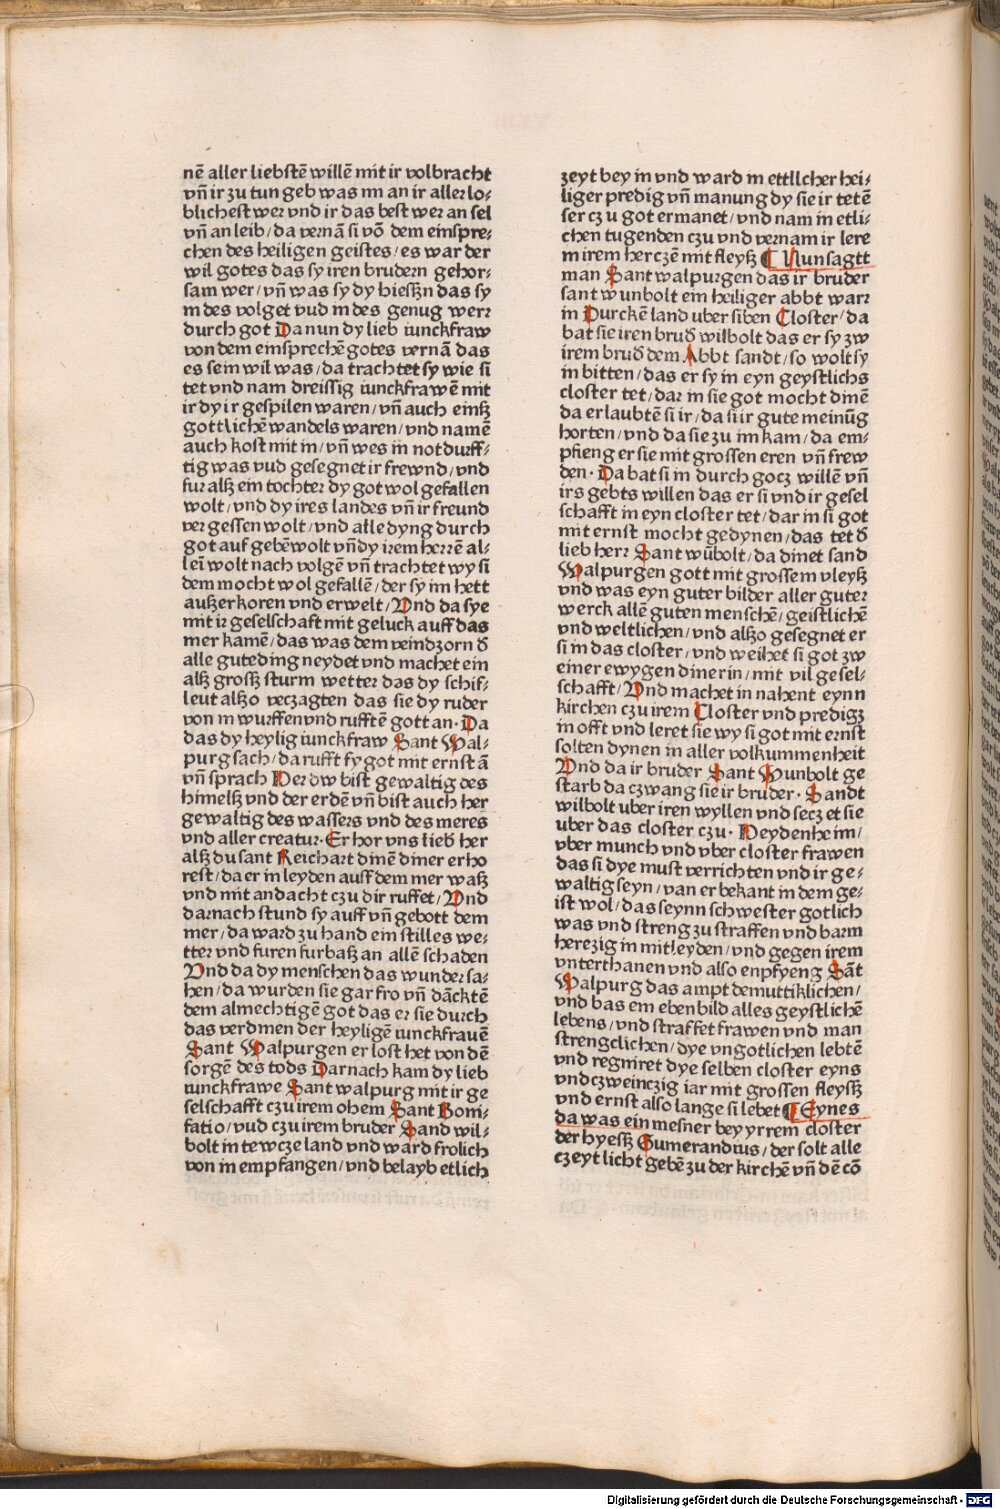 nē aller liebstē willē mit ir volbracht
vn̄ ir zu tun geb was im an ir aller lo⸗
blichest wer vnd ir das best wer an sel
vn̄ an leib/ da vernā si vō dem einspre⸗
chen des heiligen geistes/ es war der
wil gotes das sy iren brudern gehor⸗
sam wer/ vn̄ was sy dy hiesszn das sy
in des volget vud in des genug werr
durch got Da nun dy lieb iunckfraw
von dem einsprechē gotes vernā das
es sein wil was/ da trachtet sy wie si
tet vnd nam dreissig iunckfrawē mit
ir dy ir gespilen waren/ vn̄ auch einſz
gottlichē wandels waren/ vnd namē
auch kost mit in/ vn̄ wes in notdurff⸗
tig was vud gesegnet ir frewnd/ vnd
fur alſz ein tochter dy got wol gefallen
wolt/ vnd dy ires landes vn̄ ir freund
vergessen wolt/ vnd alle dyng durch
got auf gebē wolt vn̄ dy irem herrē al⸗
lei wolt nach volgē vn̄ trachtet wy si
dem mocht wol gefallē/ der sy im hett
auſzerkoren vnd erwelt/ Vnd da sye
mit ir geselschaft mit geluck auff das
mer kamē/ das was dem veindzorn d̄
alle gute ding neydet vnd machet ein
alſz groſſz sturm wetter das dy schif⸗
leut alſzo veczagten das sie dy ruder
von in wurffen vnd rufftē gott an· Da
das dy heylig iunckfraw Sant Wal⸗
purg sach/ da rufft sy got mit ernst ā
vn̄ sprach Herr dw bist gewaltig des
himelſz vnd der erdē vn̄ bist auch her
gewaltig des wassers vnd des meres
vnd aller creatur· Er hor vns lieb her
alſz du sant Reichart dinē diner erho
rest/ da er in leyden auff dem mer waſz
vnd mit andacht czu dir ruffet/ Vnd
darnach stund sy auff vn̄ gebott dem
mer/ da ward zu hand ein stilles we⸗
tter vnd furen furbaſz an allē schaden
Vnd da dy menschen das wunder sa⸗
hen/ da wurden sie gar fro vn̄ dāncktē
dem almechtigē got das er sie durch
das verdinen der heyligē iunckfrauē
Sant Walpurgen er lost het von dē
sorgē des tods Darnach kam dy lieb
iunckfrawe Sant walpurg mit ir ge
selschafft czu irem ohem Sant Boni⸗
fatio/ vud czu irem bruder Sand wil⸗
bolt in tewcze land vnd ward frolich
von in empfangen/ vnd belayb etlich
zeyt bey in vnd ward in ettllcher hei⸗
liger predig vn̄ manung dy sie ir tetē
ser cz u got ermanet/ vnd nam in etli⸗
chen tugenden czu vnd vernam ir lere
in irem herczē mit fleyſz ¶ Nun sagtt
man Sant walpurgen das ir bruder
sant wunbolt ein heiliger abbt warr
in Durckē land uber siben Closter/ da
bat sie iren brud̄ wilbolt das er sy zw
irem brud̄ dem Abbt sandt/ so wolt sy
in bitten/ das er sy in eyn geystlichs
closter tet/ dar in sie got mocht dinē
da erlaubtē si ir/ da si ir gute meinūg
horten/ vnd da sie zu im kam/ da em⸗
pfieng er sie mit grossen eren vn̄ frew
den· Da bat si in durch gocz willē vn̄
irs gebts willen das er si vnd ir gesel
schafft in eyn closter tet/ dar in si got
mit ernst mocht gedynen/ das tet d̄
lieb herr Sant wūbolt/ da dinet sand
Walpurgen gott mit grossem vleyſz
vnd was eyn guter bilder aller guter
werck allē guten menschē/ geistlichē
vnd weltlichen/ vnd alſzo gesegnet er
si in das closter/ vnd weihet si got zw
einer ewygen dinerin/ mit vil gesel⸗
schafft/ Vnd machet in nahent eynn
kirchen czu irem Closter vnd predigz
in offt vnd leret sie wy si got mit ernst
solten dynen in aller volkummenheit
Vnd da ir bruder Sant Wunbolt ge
starb da czwang sie ir bruder· Sandt
wilbolt uber iren wyllen vnd secz et sie
uber das closter czu· Heydenheim/
vber munch vnd vber closter frawen
das si dye must verrichten vnd ir ge⸗
waltig seyn/ van er bekant in dem ge⸗
ist wol/ das seynn schwester gotlich
was vnd streng zu straffen vnd barm
herezig in mitleyden/ vnd gegen irem
vnterthanen vnd also enpfyeng Sāt
Walpurg das ampt demuttiklichen/
vnd bas em ebenbild alles geystlichē
lebens/ vnd straffet frawen vnd man
strengclichen/ dye vngotlichen lebtē
vnd regniret dye selben closter eyns
vnd czweinczig iar mit grossen fleysſz
vnd ernst also lange si lebet ¶ Eynes
da was ein mesner bey yrrem closter
der hyeſſz Gumerandius/ der solt alle
czeyt licht gebē zu der kirchē vn̄ dē cō
Digitalisierung gefördert durch die Deutsche Forschungsgemeinschaft - DFG